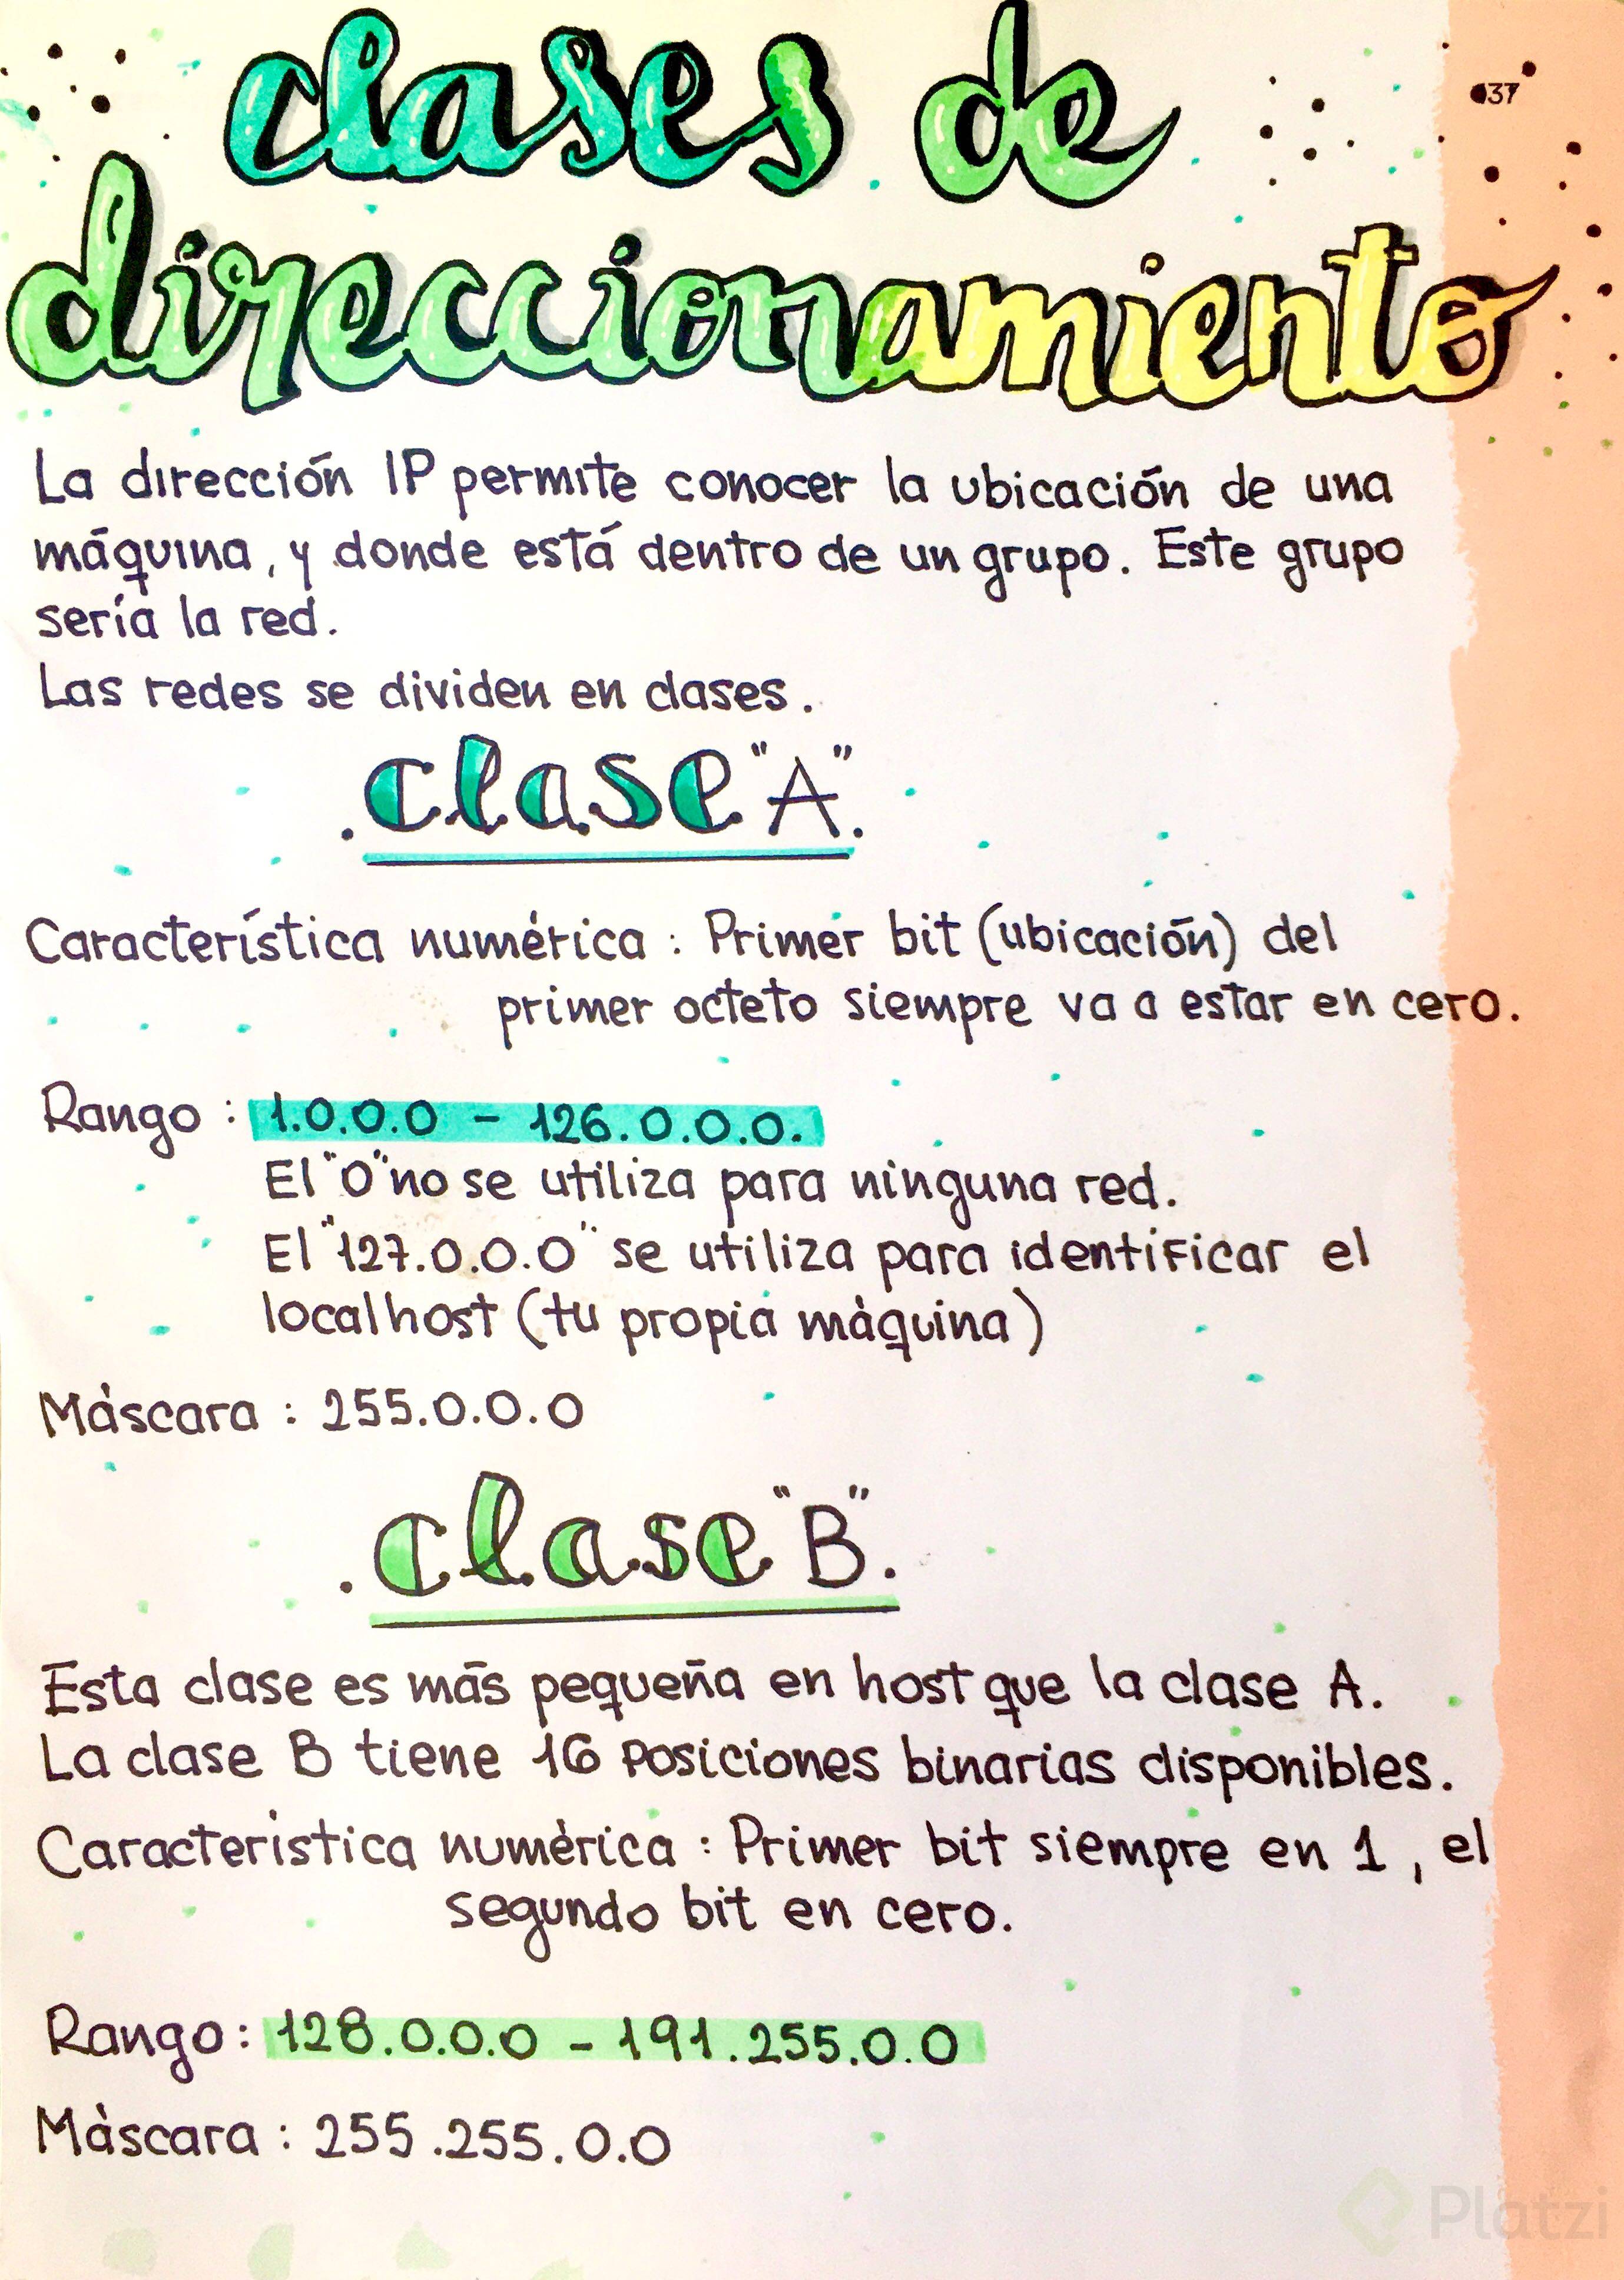 clases de
37
direccionamiento
La dirección IP permite conocer la ubicación de una
máquina, y donde está dentro de un grupo. Este grupo
sería la red.
Las redes se dividen en clases.
.clase "A".
Característica numérica : Primer bit (ubicación) del
primer octeto siempre va a estar en cero.
Rango : 1.0.0.0 - 126.0.0.0.
El "0" no se utiliza para ninguna red.
El "127.0.0.0" se utiliza para identificar el
localhost (tu propia máquina)
Máscara : 255.0.0.0
.clase "B".
Esta clase es más pequeña en host que la clase A.
La clase B tiene 16 posiciones binarias disponibles.
Característica numérica : Primer bit siempre en 1, el
segundo bit en cero.
Rango: 128.0.0.0 - 191.255.0.0
Máscara : 255.255.0.0
Platzi